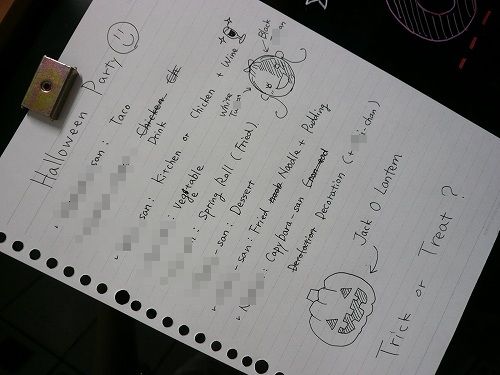 Halloween Party
san : Taco
: Chicken
Drink
san : Kitchen or Chicken + Wine
: Vegetable
: Spring Roll (Fried)
-san : Dessert
-san : Fried Noodle + Pudding
: Capybara-san
Decoration Decoration (+ -chan)
Black
White
Jack O Lantern
Trick or Treat ?